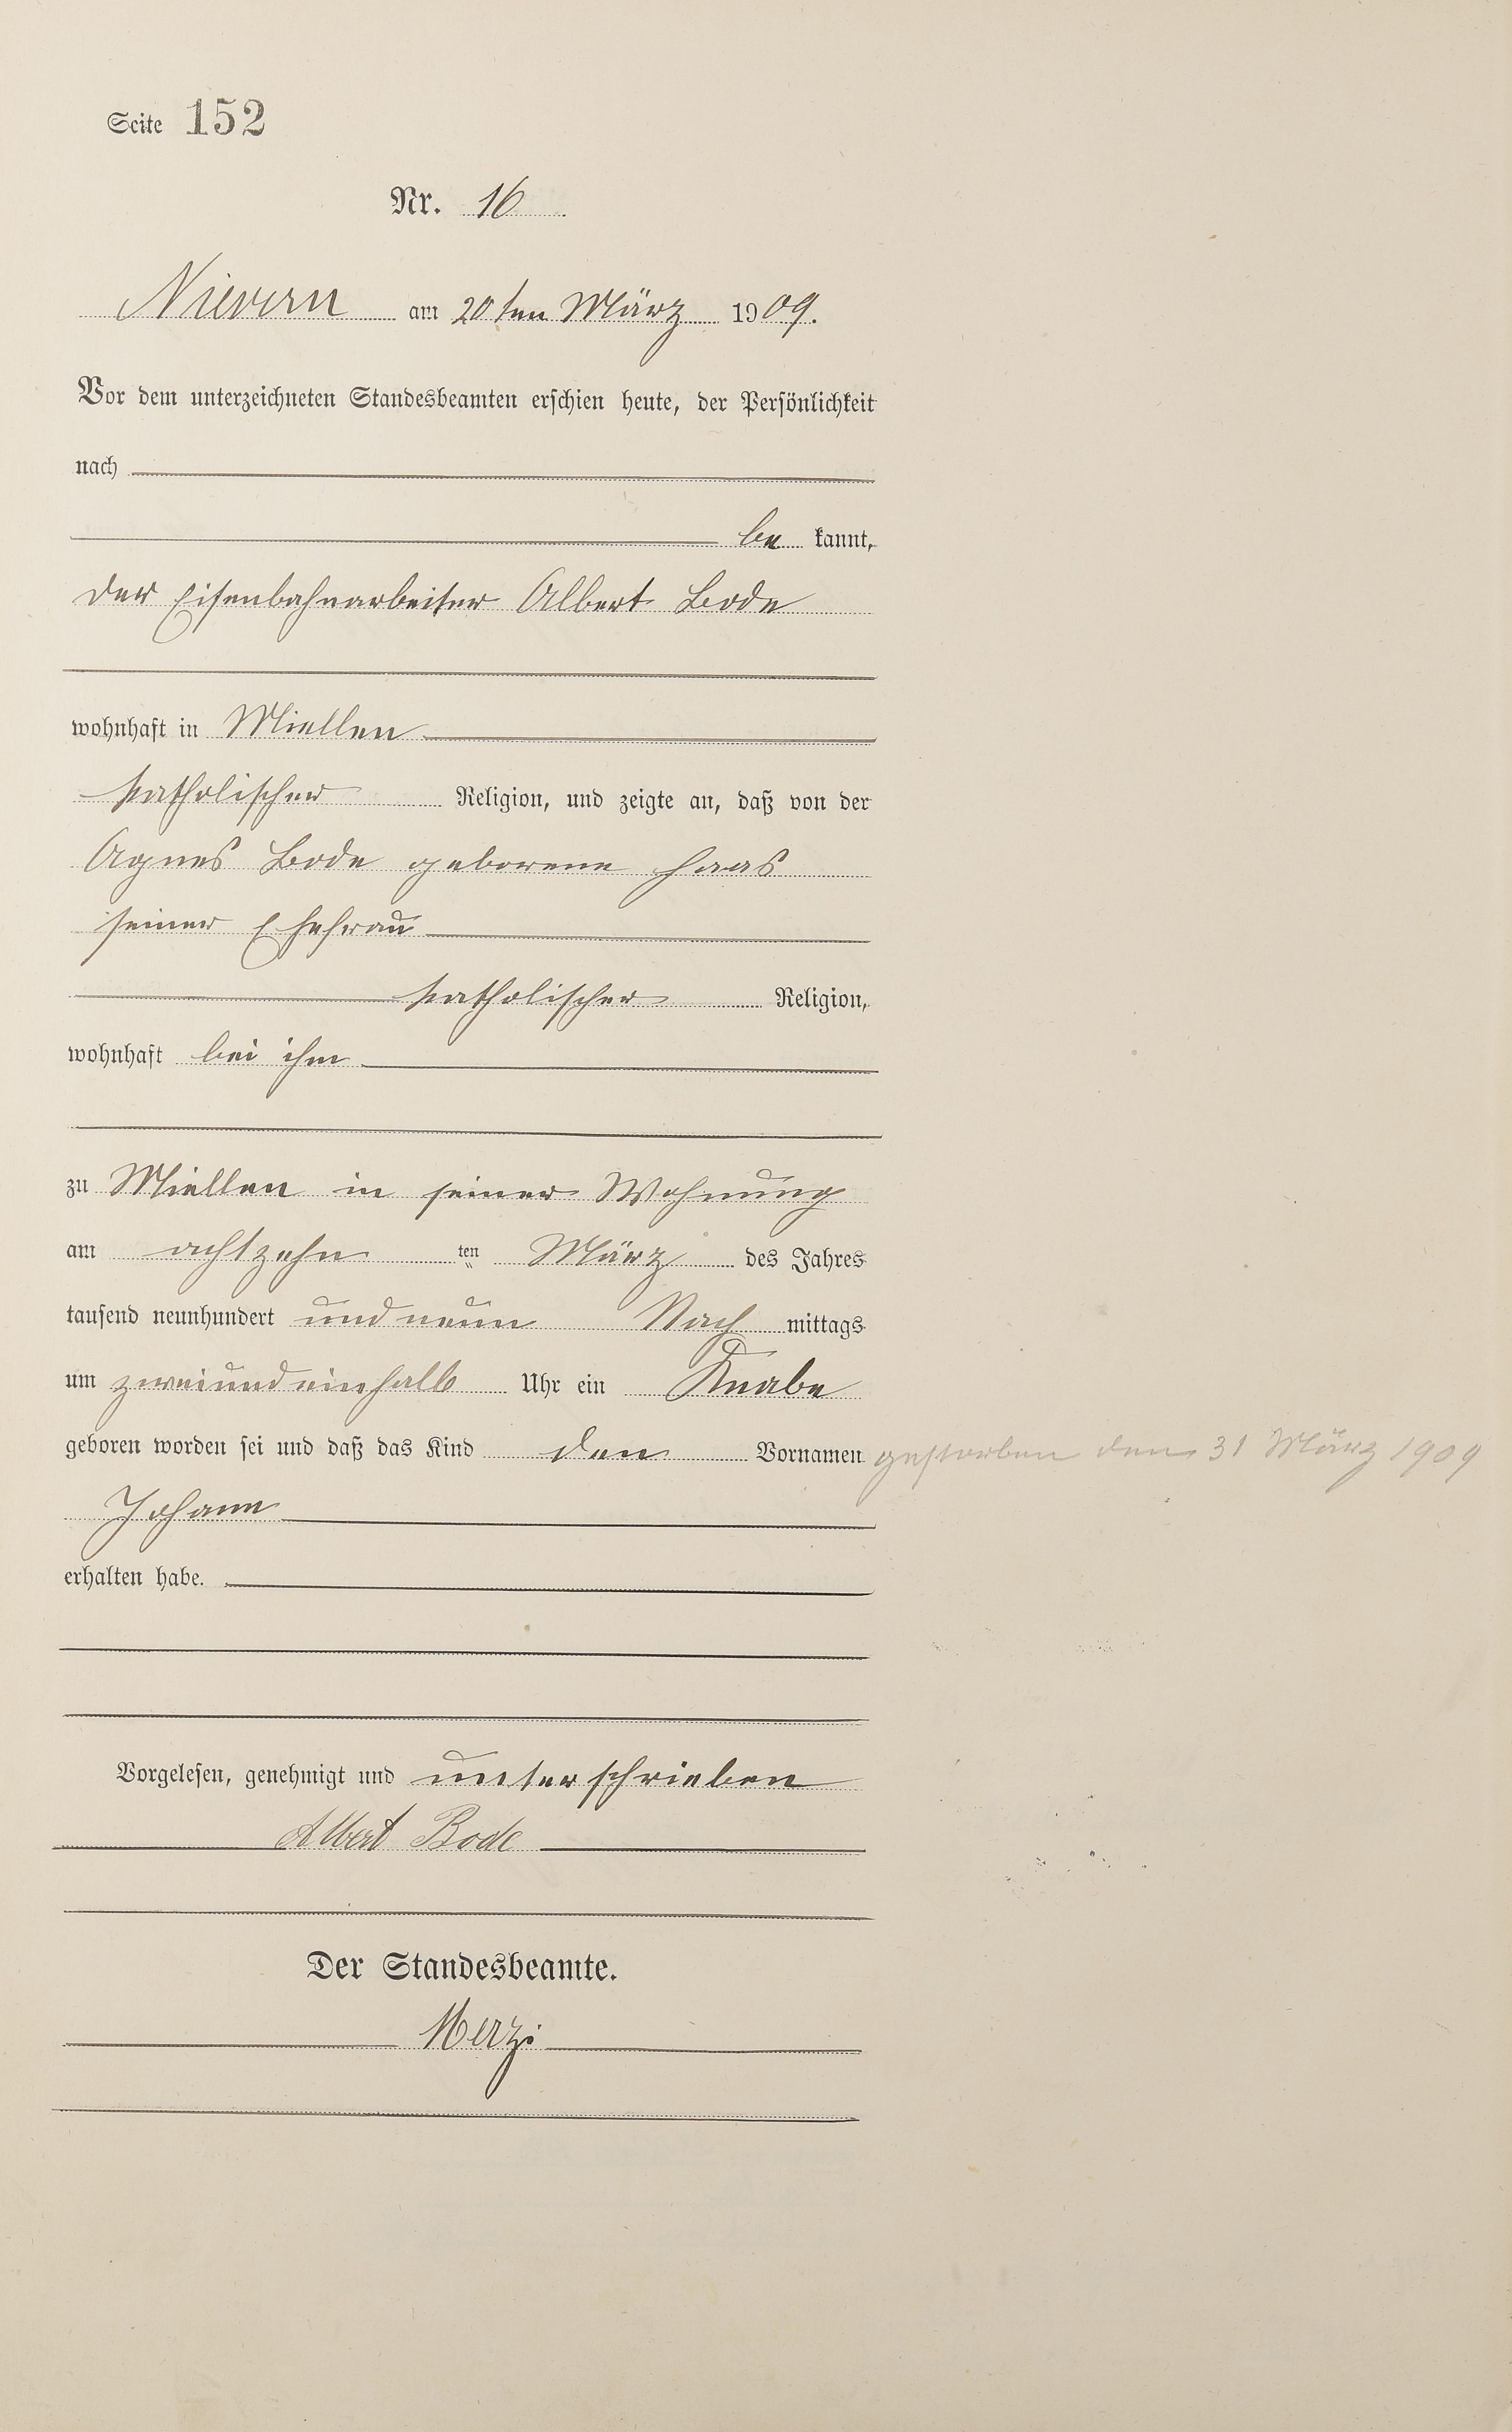 Seite 152
Nr. 16
Nievern am 20ten März 1909.
Vor dem unterzeichneten Standesbeamten erschien heute, der Persönlichkeit
nach
be kannt,
der Eisenbahnarbeiter Albert Bode
wohnhaft in Miellen
katholischer Religion, und zeigte an, daß von der
Agnes Bode geborene Haas
seiner Ehefrau
katholischer Religion,
wohnhaft bei ihm
zu Miellen in seiner Wohnung
am achtzehn ten März des Jahres
tausend neunhundert und neun Nach mittags
um zweiundeinhalb Uhr ein Knabe
geboren worden sei und daß das Kind den Vornamen gestorben den 31 März 1909
Johann
erhalten habe.
Vorgelesen, genehmigt und unterschrieben
Albert Bode
Der Standesbeamte.
Merzi